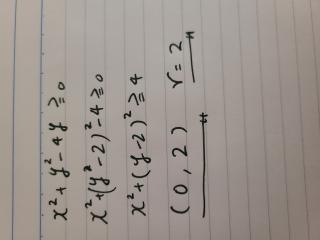 x² + y² - 4y ≥ 0
x² + (y² - 2)² - 4 ≥ 0
x² + (y - 2)² ≥ 4
(0, 2) r = 2